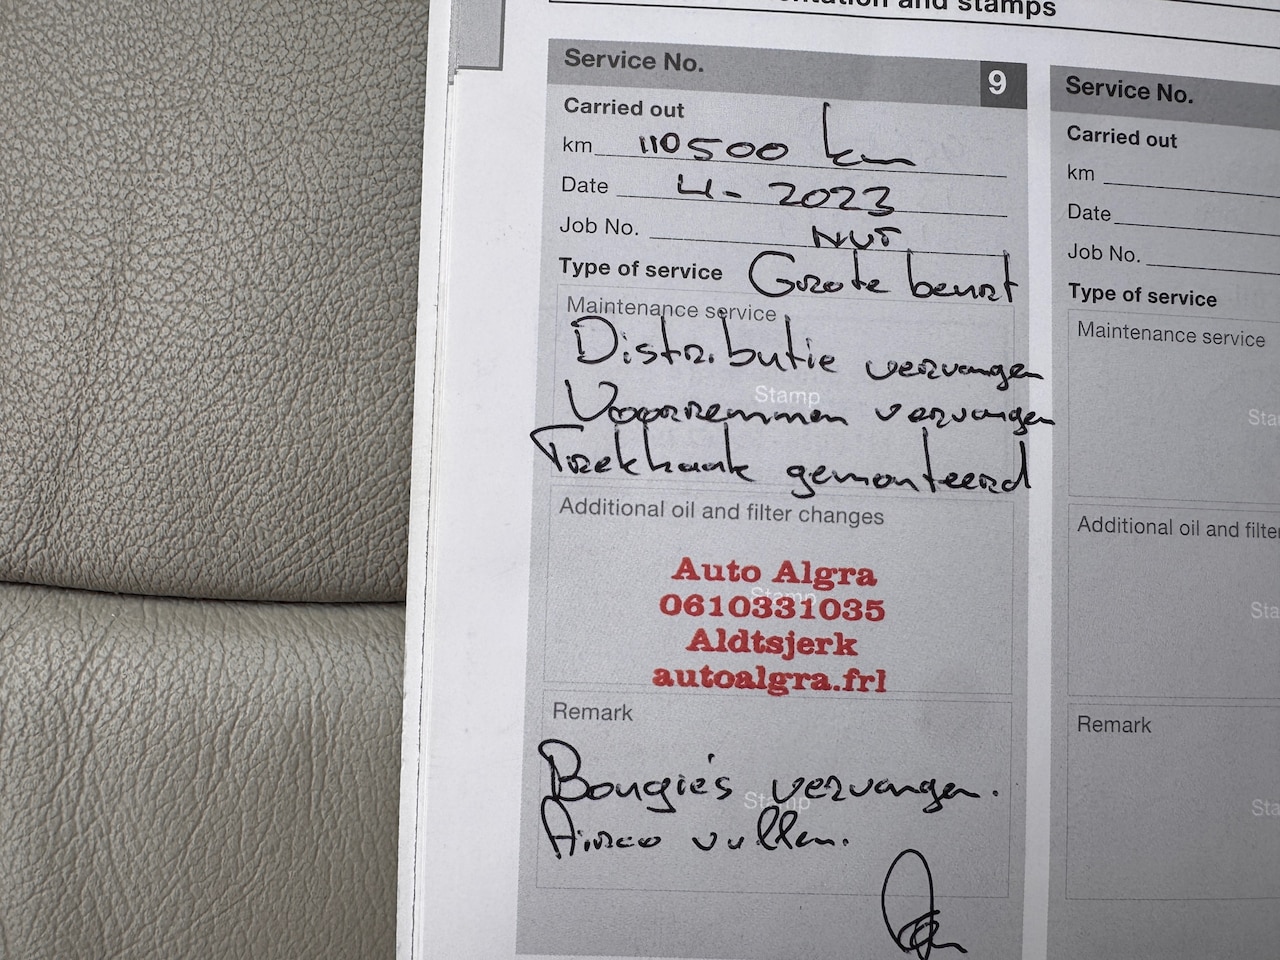 ntation and stamps
Service No. 9
Carried out
km 110500 km
Date 4-2023
Job No. NVT
Type of service Grote beurt
Maintenance service
Distributie vervangen
Stamp
Voorremmen vervangen
Trekhaak gemonteerd
Additional oil and filter changes
Auto Algra
Stamp
0610331035
Aldtsjerk
autoalgra.frl
Remark
Bougie's vervangen.
Stamp
Airco vullen.
Service No.
Carried out
km
Date
Job No.
Type of service
Maintenance service
Sta
Additional oil and filter
Sta
Remark
Sta